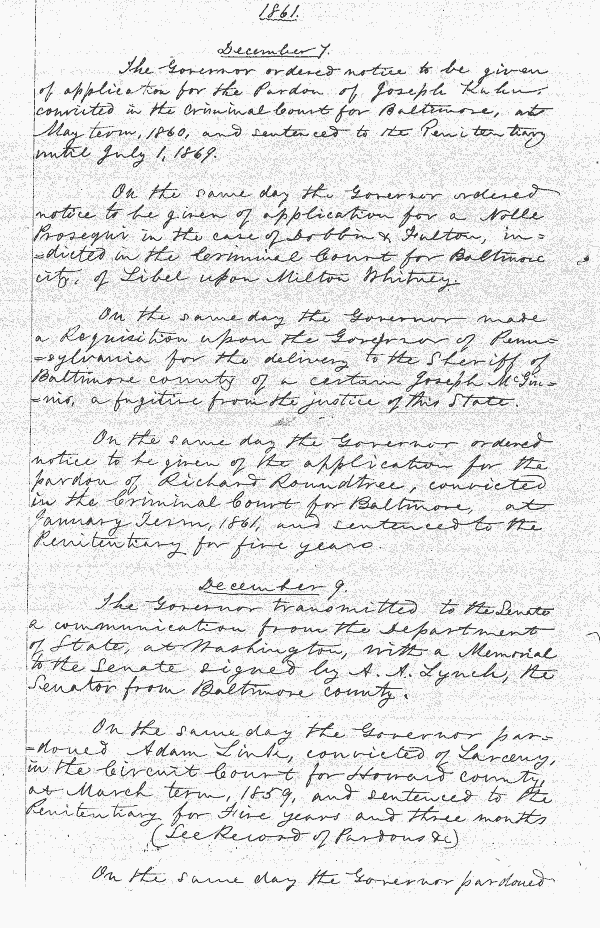 1861.
December 7.
The Governor ordered notice to be given
of application for the Pardon of Joseph Kuhn,
convicted in the Criminal Court for Baltimore, at
May term, 1860, and sentenced to the Penitentiary
until July 1, 1869.
On the same day the Governor ordered
notice to be given of application for a Nolle
Prosequi in the case of Dobbin & Fulton, in=
=dicted in the Criminal Court for Baltimore
city, of Libel upon Milton Whitney.
On the same day the Governor made
a Requisition upon the Governor of Penn=
=sylvania for the delivery to the Sheriff of
Baltimore county of a certain Joseph McGin=
=nis, a fugitive from the justice of this State.
On the same day the Governor ordered
notice to be given of the application for the
pardon of Richard Roundtree, convicted
in the Criminal Court for Baltimore, at
January Term, 1861, and sentenced to the
Penitentiary for five years.
December 9.
The Governor transmitted to the Senate
a communication from the Department
of State, at Washington, with a Memorial
to the Senate signed by A. A. Lynch, the
Senator from Baltimore county.
On the same day the Governor par=
=doned Adam Link, convicted of Larceny,
in the Circuit Court for Howard county,
at March term, 1859, and sentenced to the
Penitentiary for Five years and three months
(See Record of Pardons &c)
On the same day the Governor pardoned